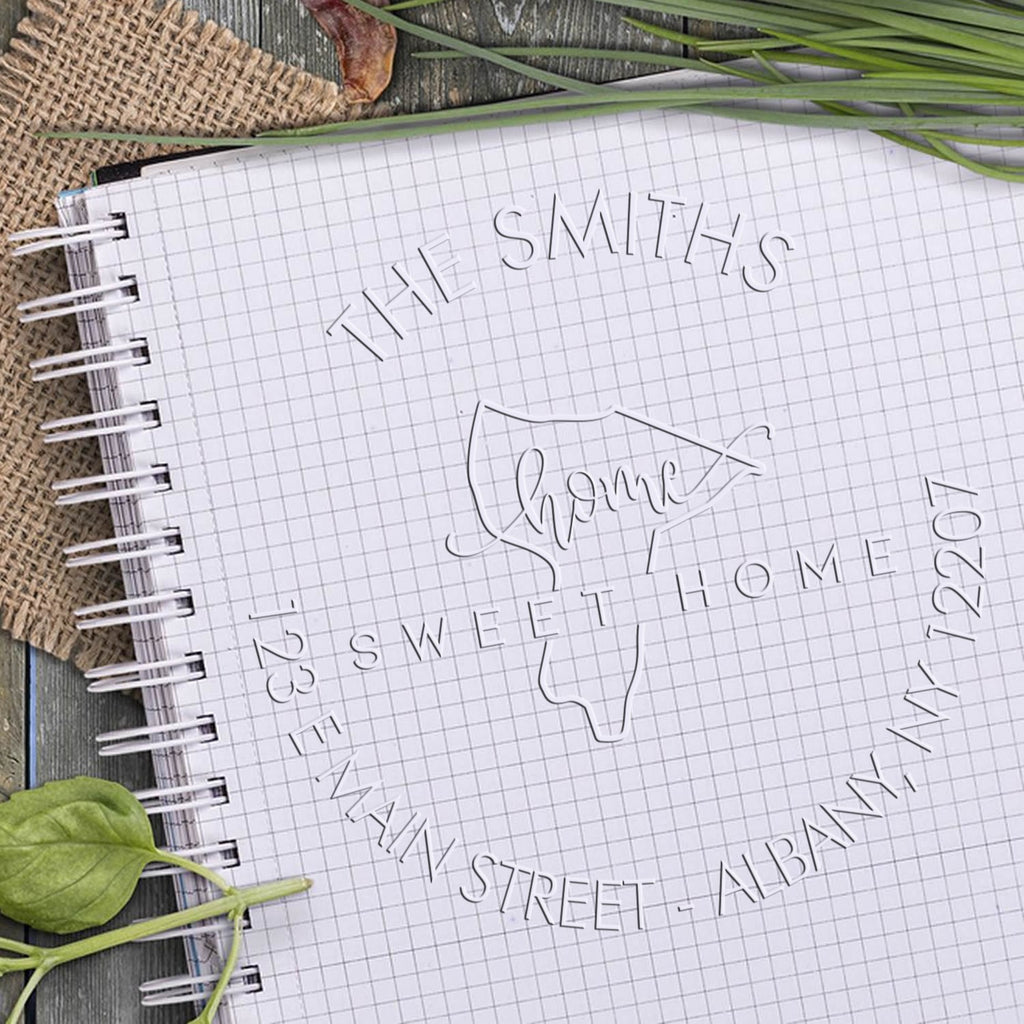 THE SMITHS
home
SWEET HOME
123 E MAIN STREET - ALBANY, NY 12207